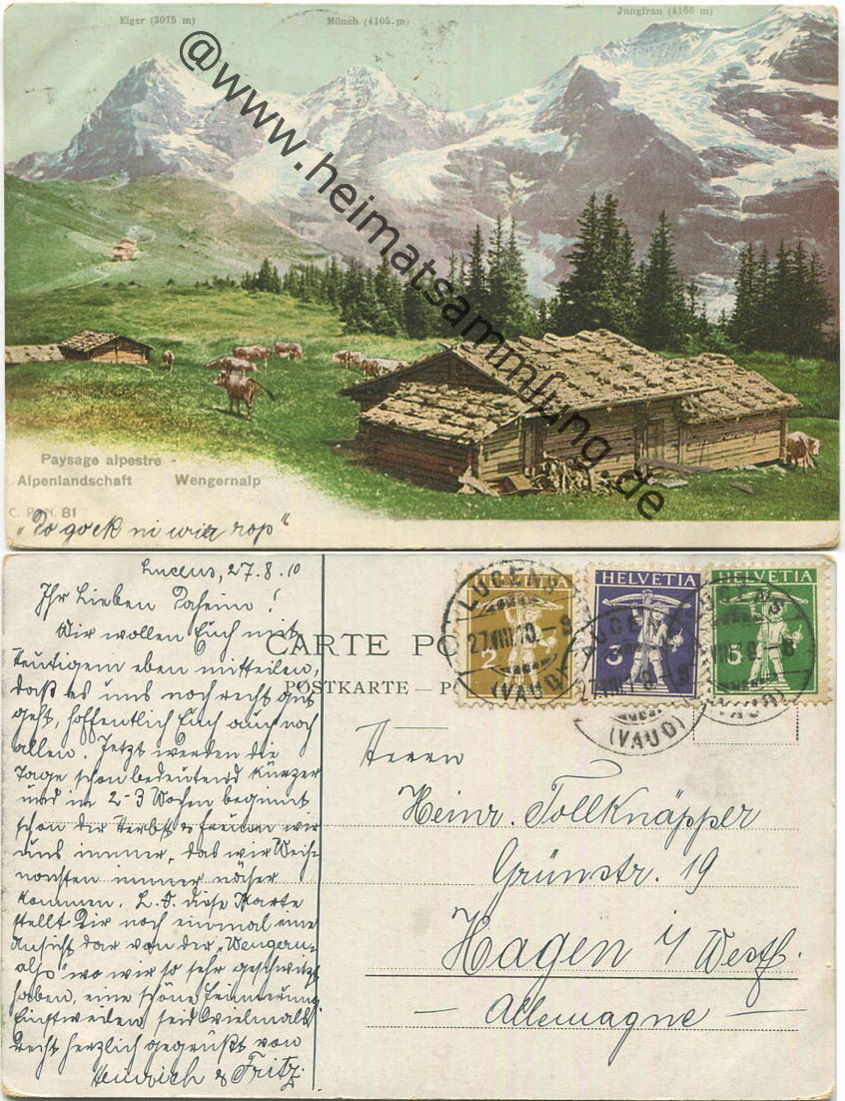 Eiger (3075 m)
Mönch (4105 m)
Jungfrau (4166 m)
@www.heimatsammlung.de
Paysage alpestre -
Alpenlandschaft Wengernalp
C. P. N. 81
Lucens, 27.8.10
Ihr Lieben Daheim!
Wir wollen Euch mit
Heutigem eben mitteilen,
daß es uns noch recht gut
geht, hoffentlich Euch auch noch
allen. Jetzt werden die
Tage schon bedeutend kürzer
und in 2-3 Wochen beginnt
schon der Herbst & freuen wir
uns immer, das wir Weih-
nachten immer näher
kommen. L. V. diese Karte
stellt Dir noch einmal eine
Ansicht dar von der „Wengern-
alp" wo wir so sehr geschwitzt
haben, eine schöne Erinnerung
Einstweilen seid vielmals
recht herzlich gegrüßt von
Heinrich & Fritz.
CARTE PO
POSTKARTE — P
LUCENS
27.VIII.10.-8
(VAUD)
2
HELVETIA
3
LUCENS
(VAUD)
HELVETIA
5
LUCENS
(VAUD)
Herrn
Heinr. Tollknäpper
Grünstr. 19
Hagen i/Westf.
— Allemagne —